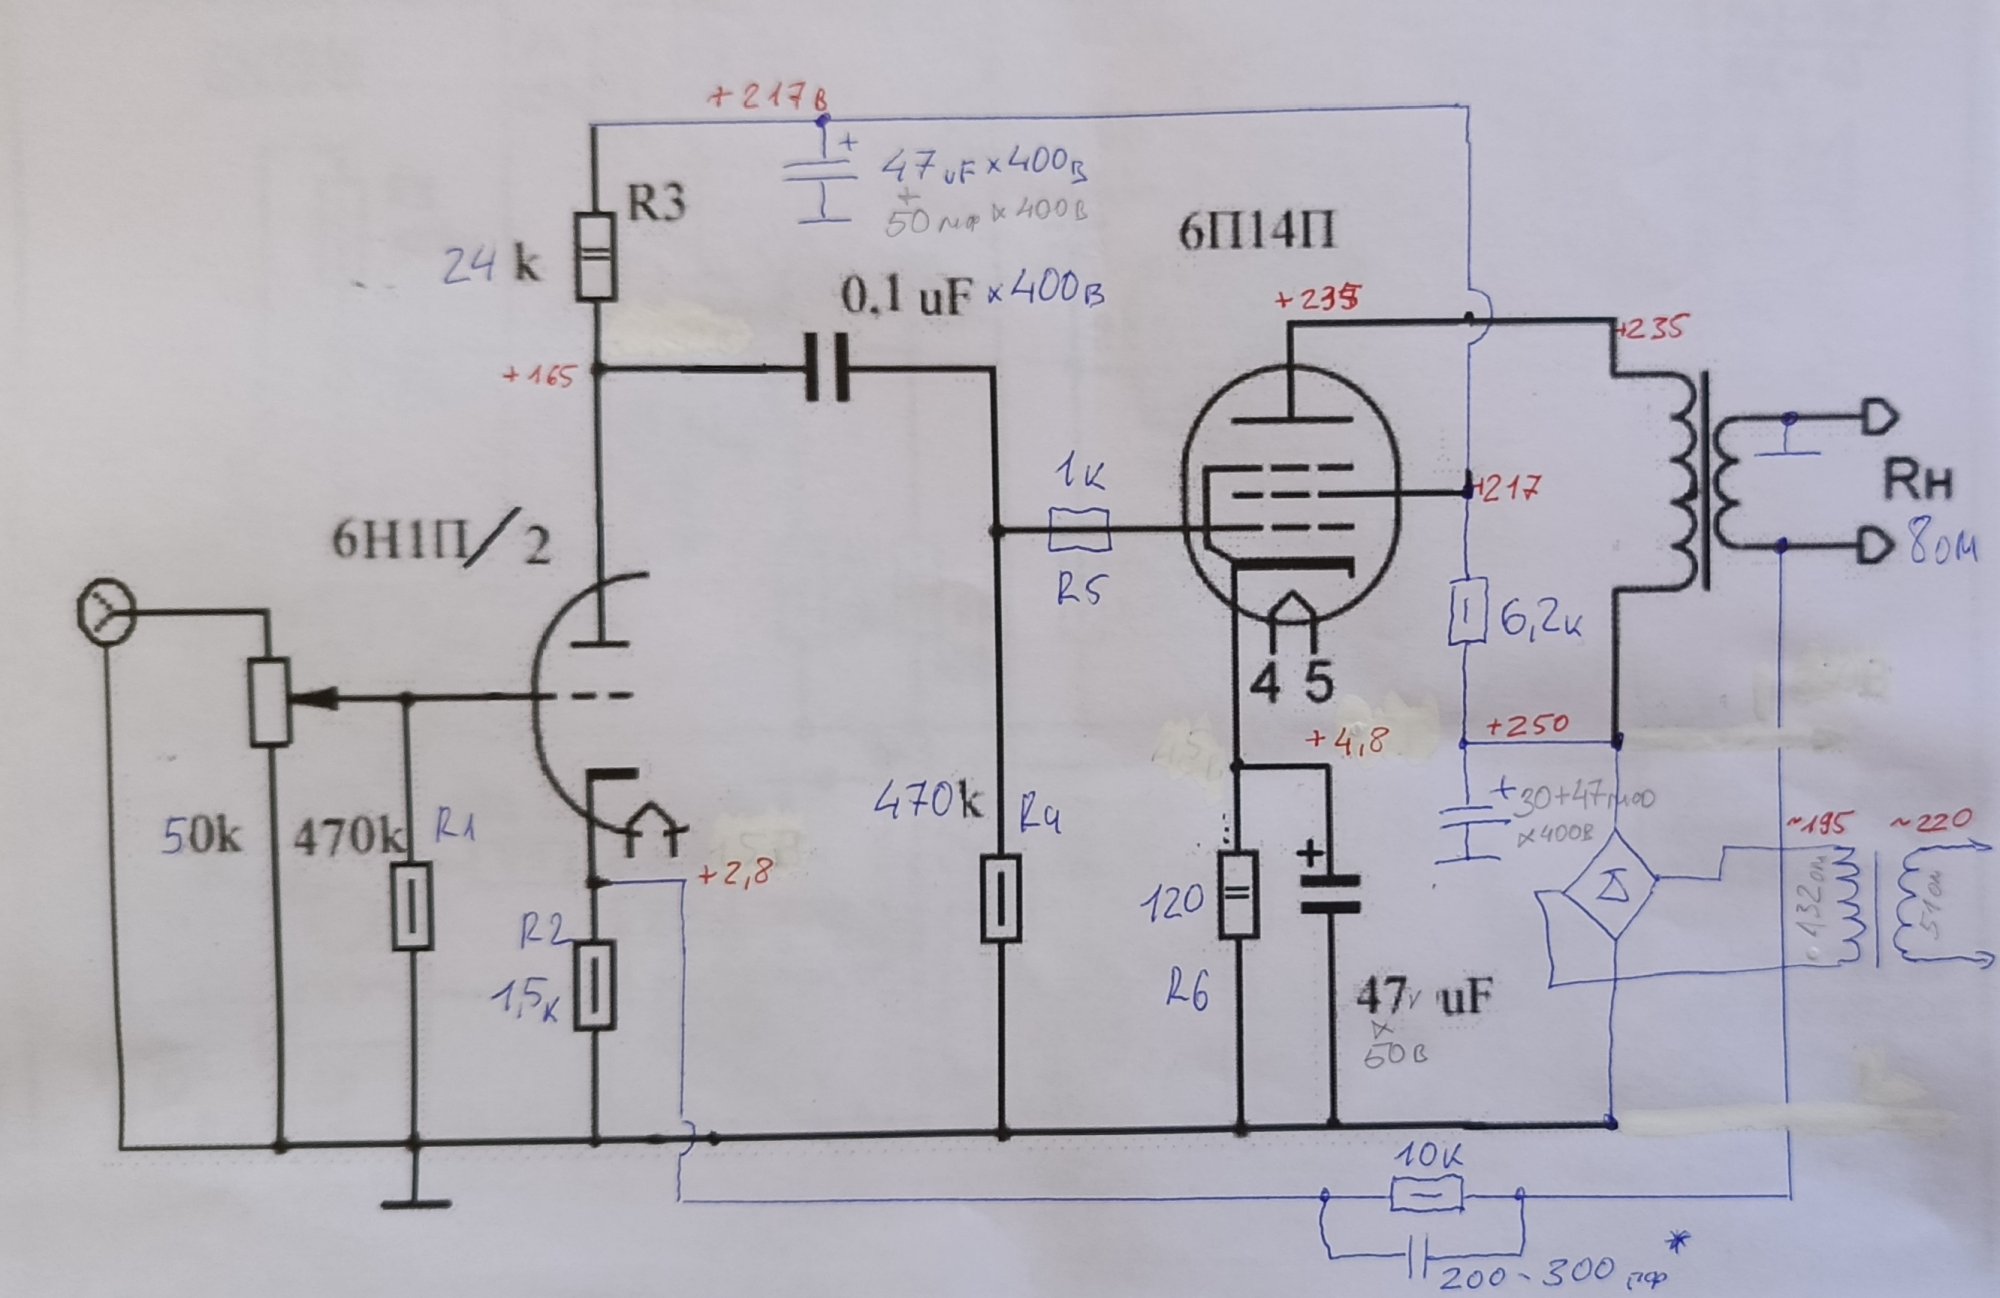 +217В
+
47uF×400В
+
50мф×400В
R3
24 k
0,1 uF ×400В
6П14П
+235
+235
+165
1к
R5
+217
Rн
8ом
6Н1П/2
6,2к
4 5
+250
+4,8
50k
470k
R1
470k
R4
+2,8
+
30+47мф
×400В
~195
~220
432ом
51ом
R2
1,5к
120
R6
+
47 uF
×
50В
10к
200-300 пф
*